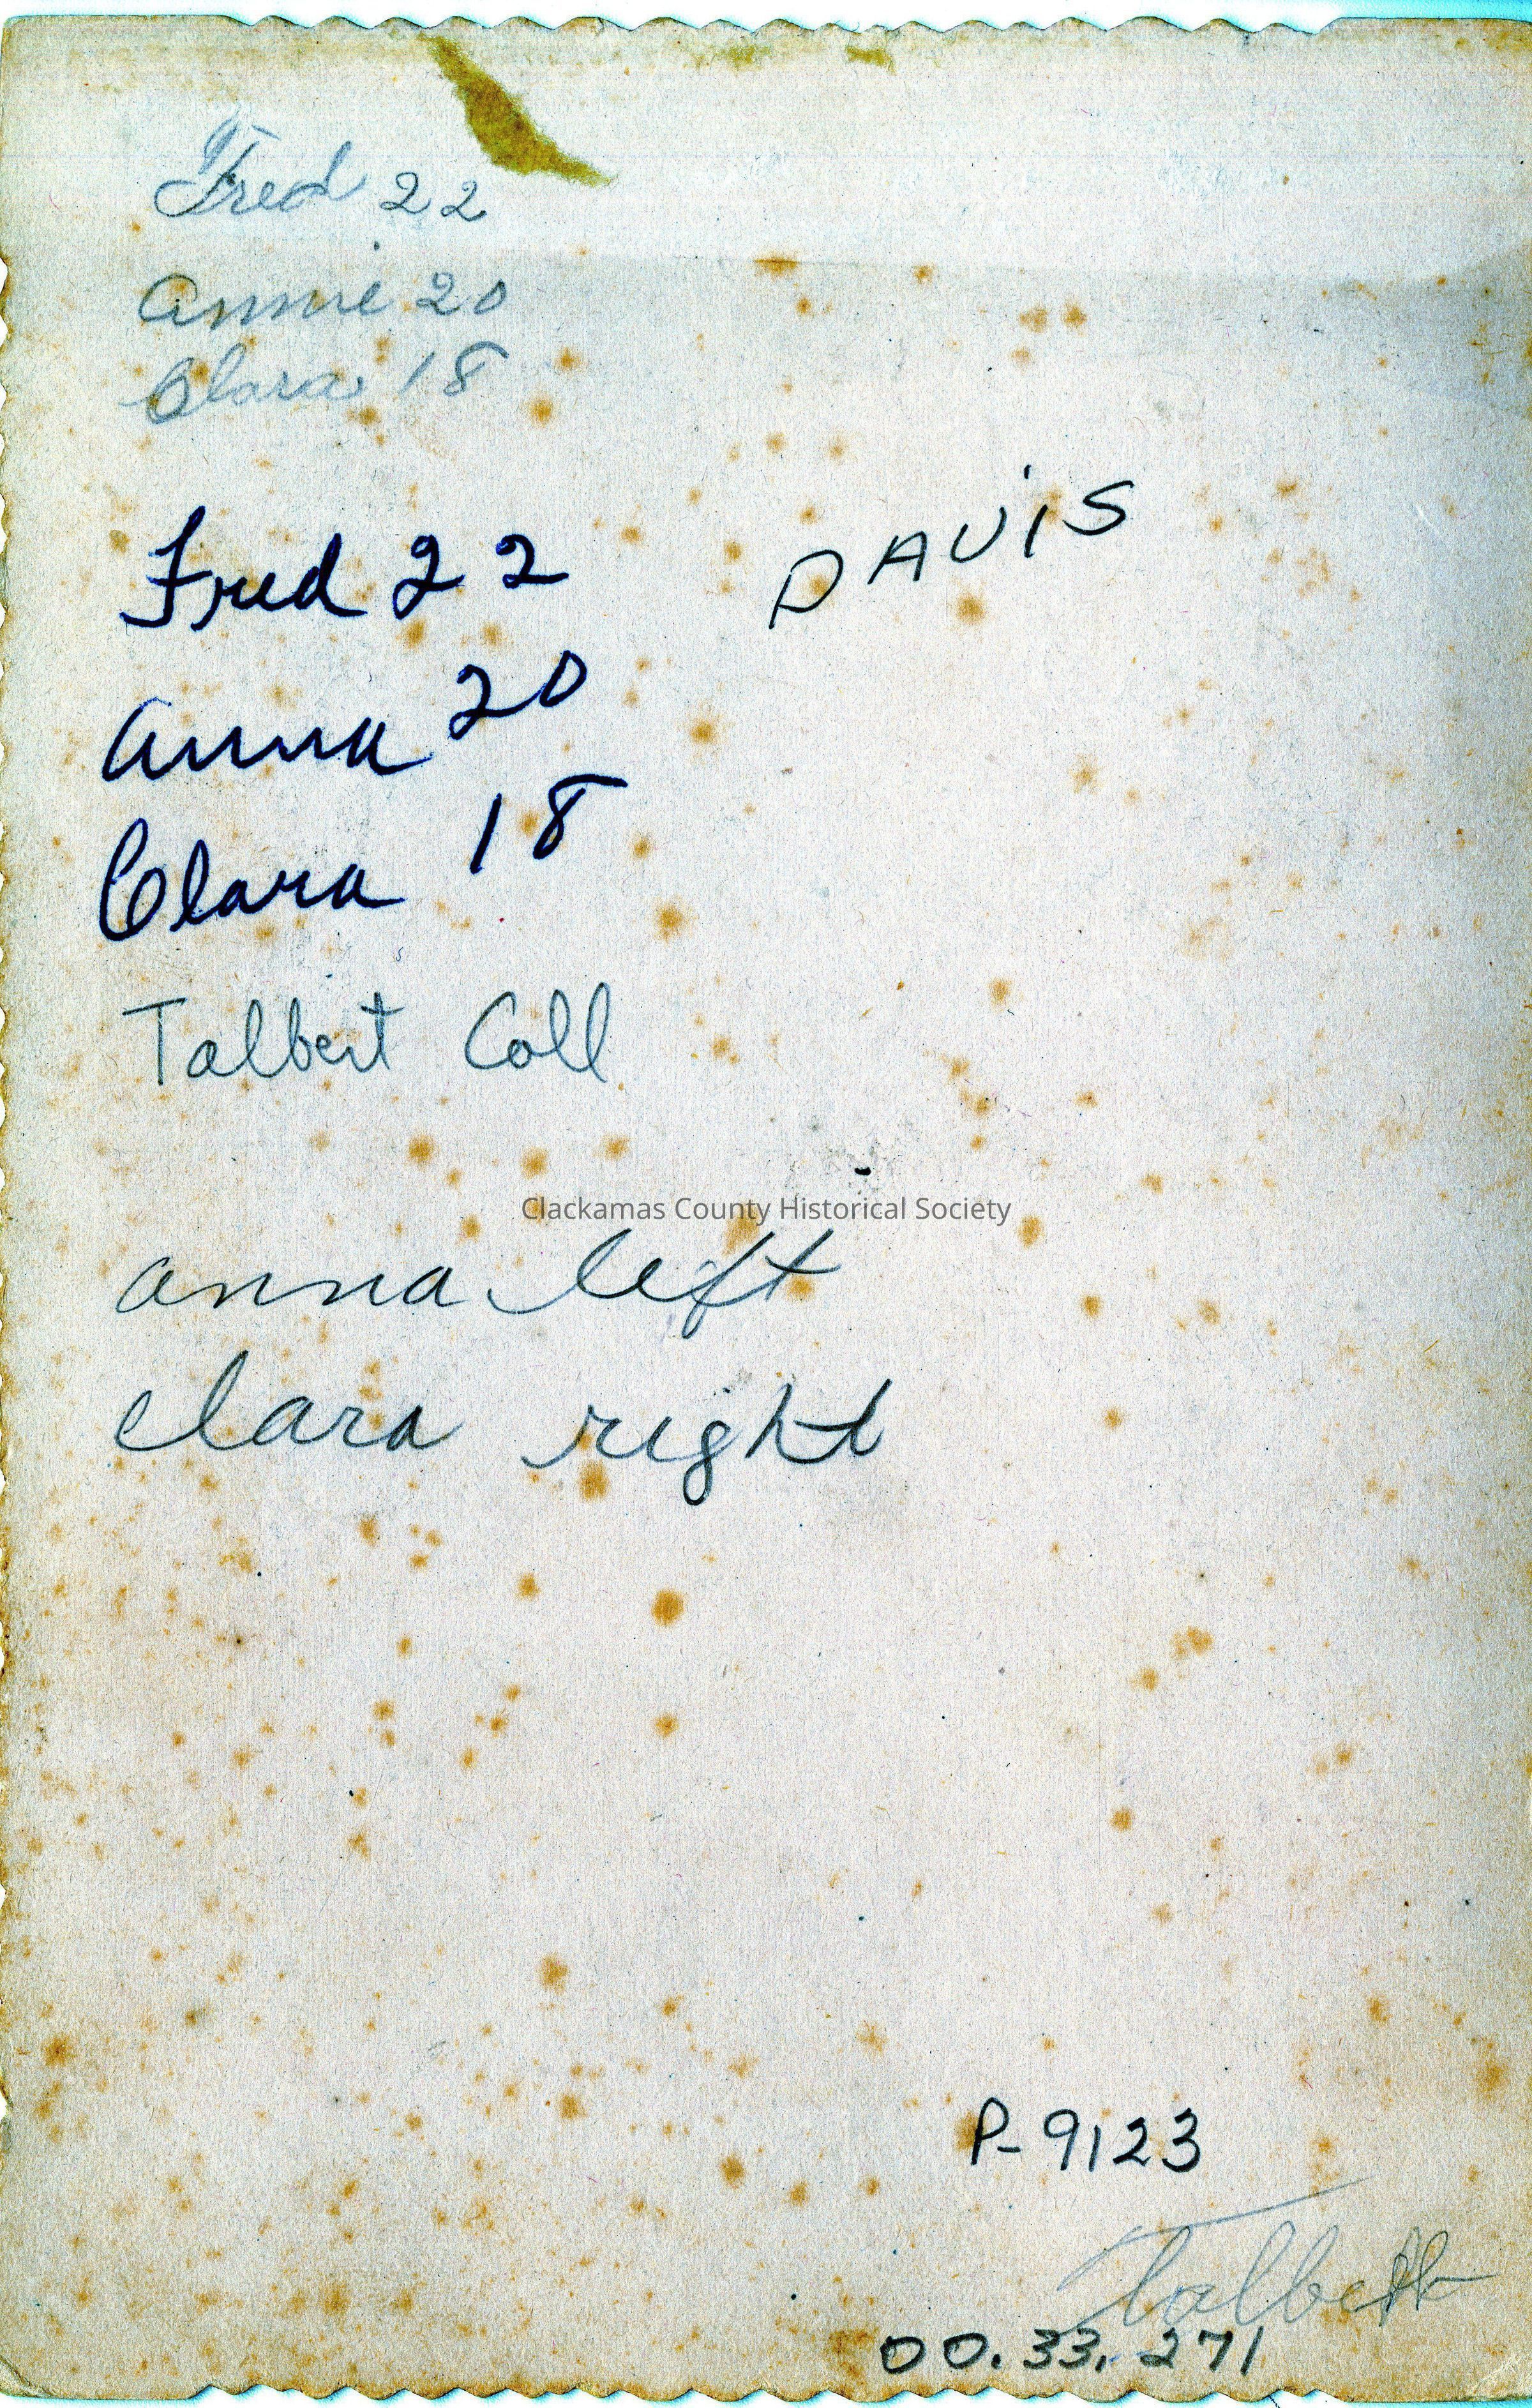 Fred 22
Annie 20
Clara 18
Fred 22
DAViS
Anna 20
Clara 18
Talbert Coll
Clackamas County Historical Society
anna left
clara right
P-9123
Talbert
00.33.271